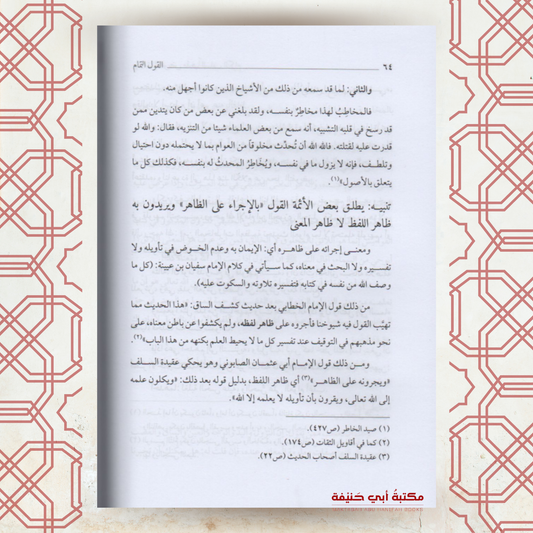 ٦٤ القول التمام
والثاني: لما قد سمعه من ذلك من الأشياخ الذين كانوا أجهل منه.
فالمخاطِبُ لهذا مخاطِرٌ بنفسه، ولقد بلغني عن بعض من كان يتدين ممن
قد رسخ في قلبه التشبيه، أنه سمع من بعض العلماء شيئا من التنزيه، فقال: والله لو
قدرت عليه لقتلته. فالله الله أن تُحدِّث مخلوقاً من العوام بما لا يحتمله دون احتيال
وتلطف، فإنه لا يزول ما في نفسه، ويُخَاطِرُ المحدثُ له بنفسه، فكذلك كل ما
يتعلق بالأصول»(١).
تنبيـه: يطلق بعض الأئمة القول «بالإجراء على الظاهر» ويريدون به
ظاهر اللفظ لا ظاهر المعنى
ومعنـى إجرائه على ظاهـره أي: الإيمان به وعدم الخوض في تأويله ولا
تفسيره ولا البحث في معناه، كما سيأتي في كلام الإمام سفيان بن عيينة: (كل ما
وصف الله من نفسه في كتابه فتفسيره تلاوته والسكوت عليه).
من ذلك قول الإمام الخطابي بعد حديث كشـف الساق: «هذا الحديث مما
تهيَّب القول فيه شيوخنا فأجروه على ظاهر لفظه، ولم يكشفوا عن باطن معناه، على
نحو مذهبهم في التوقيف عند تفسير كل ما لا يحيط العلم بكنهه من هذا الباب»(٢).
ومـن ذلك قول الإمام أبي عثمان الصابوني وهو يحكي عقيدة السلف
«ويجرونه على الظاهـر»(٣) أي ظاهر اللفظ، بدليل قوله بعد ذلك: «ويكلون علمه
إلى الله تعالى، ويقرون بأن تأويله لا يعلمه إلا الله».
(١) صيد الخاطر (ص٤٢٧).
(٢) كما في أقاويل الثقات (ص١٧٤).
(٣) عقيدة السلف أصحاب الحديث (ص٢٢).
مكتبة أبي حنيفة